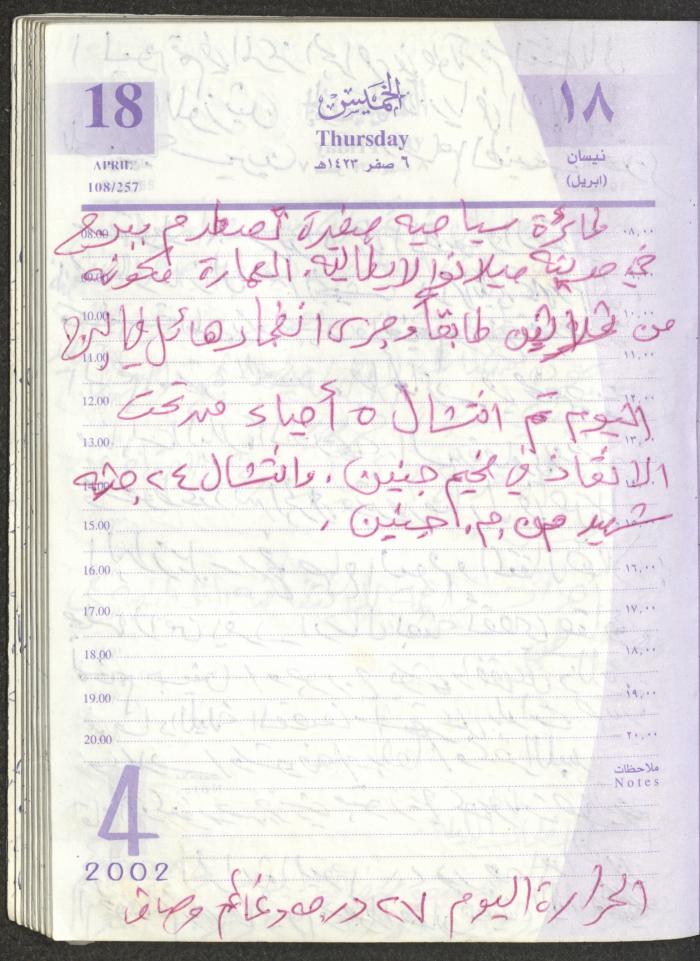 18
الخميس
١٨
Thursday
APRIL
نيسان
٦ صفر ١٤٢٣هـ
108/257
(ابريل)
طائرة سياحيه صغيرة تصطدم ببرج
08.00
٠٨,٠٠
في مدينة ميلانو الايطاليه. العمارة مكونه
09.00
من ثلاثين طابقاً وجرى انفجار هائل في البرج
10.00
١٠,٠٠
11.00
١١,٠٠
اليوم تم انتشال ٥ أحياء من تحت
12.00
١٢,٠٠
13.00
١٣,٠٠
الانقاذ في مخيم جنين. وانتشال ٢٤ جثه
14.00
شهيد من م. جنين.
15.00
16.00
١٦,٠٠
17.00
١٧,٠٠
18.00
١٨,٠٠
19.00
١٩,٠٠
20.00
٢٠,٠٠
ملاحظات
Notes
4
2002
الحرارة اليوم ٢٧ درجه وغائم وصاف